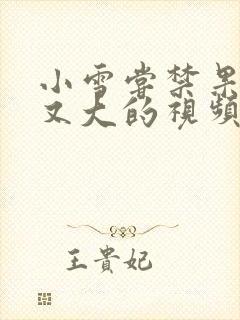 小雪嘗禁果
又大的視頻
王貴妃